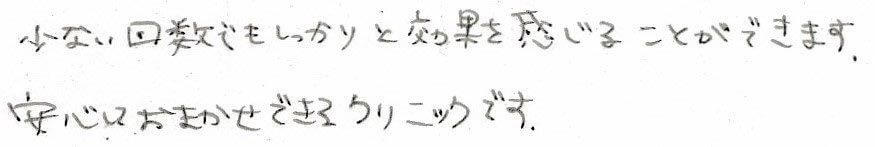 少ない回数でもしっかりと効果を感じることができます.
安心しておまかせできるクリニックです.